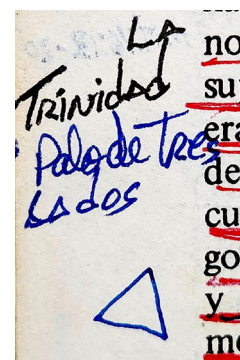 LA
TRINIDAD
Palo de Tres
LADOS
no
su
era
de
cu
go
y
mo